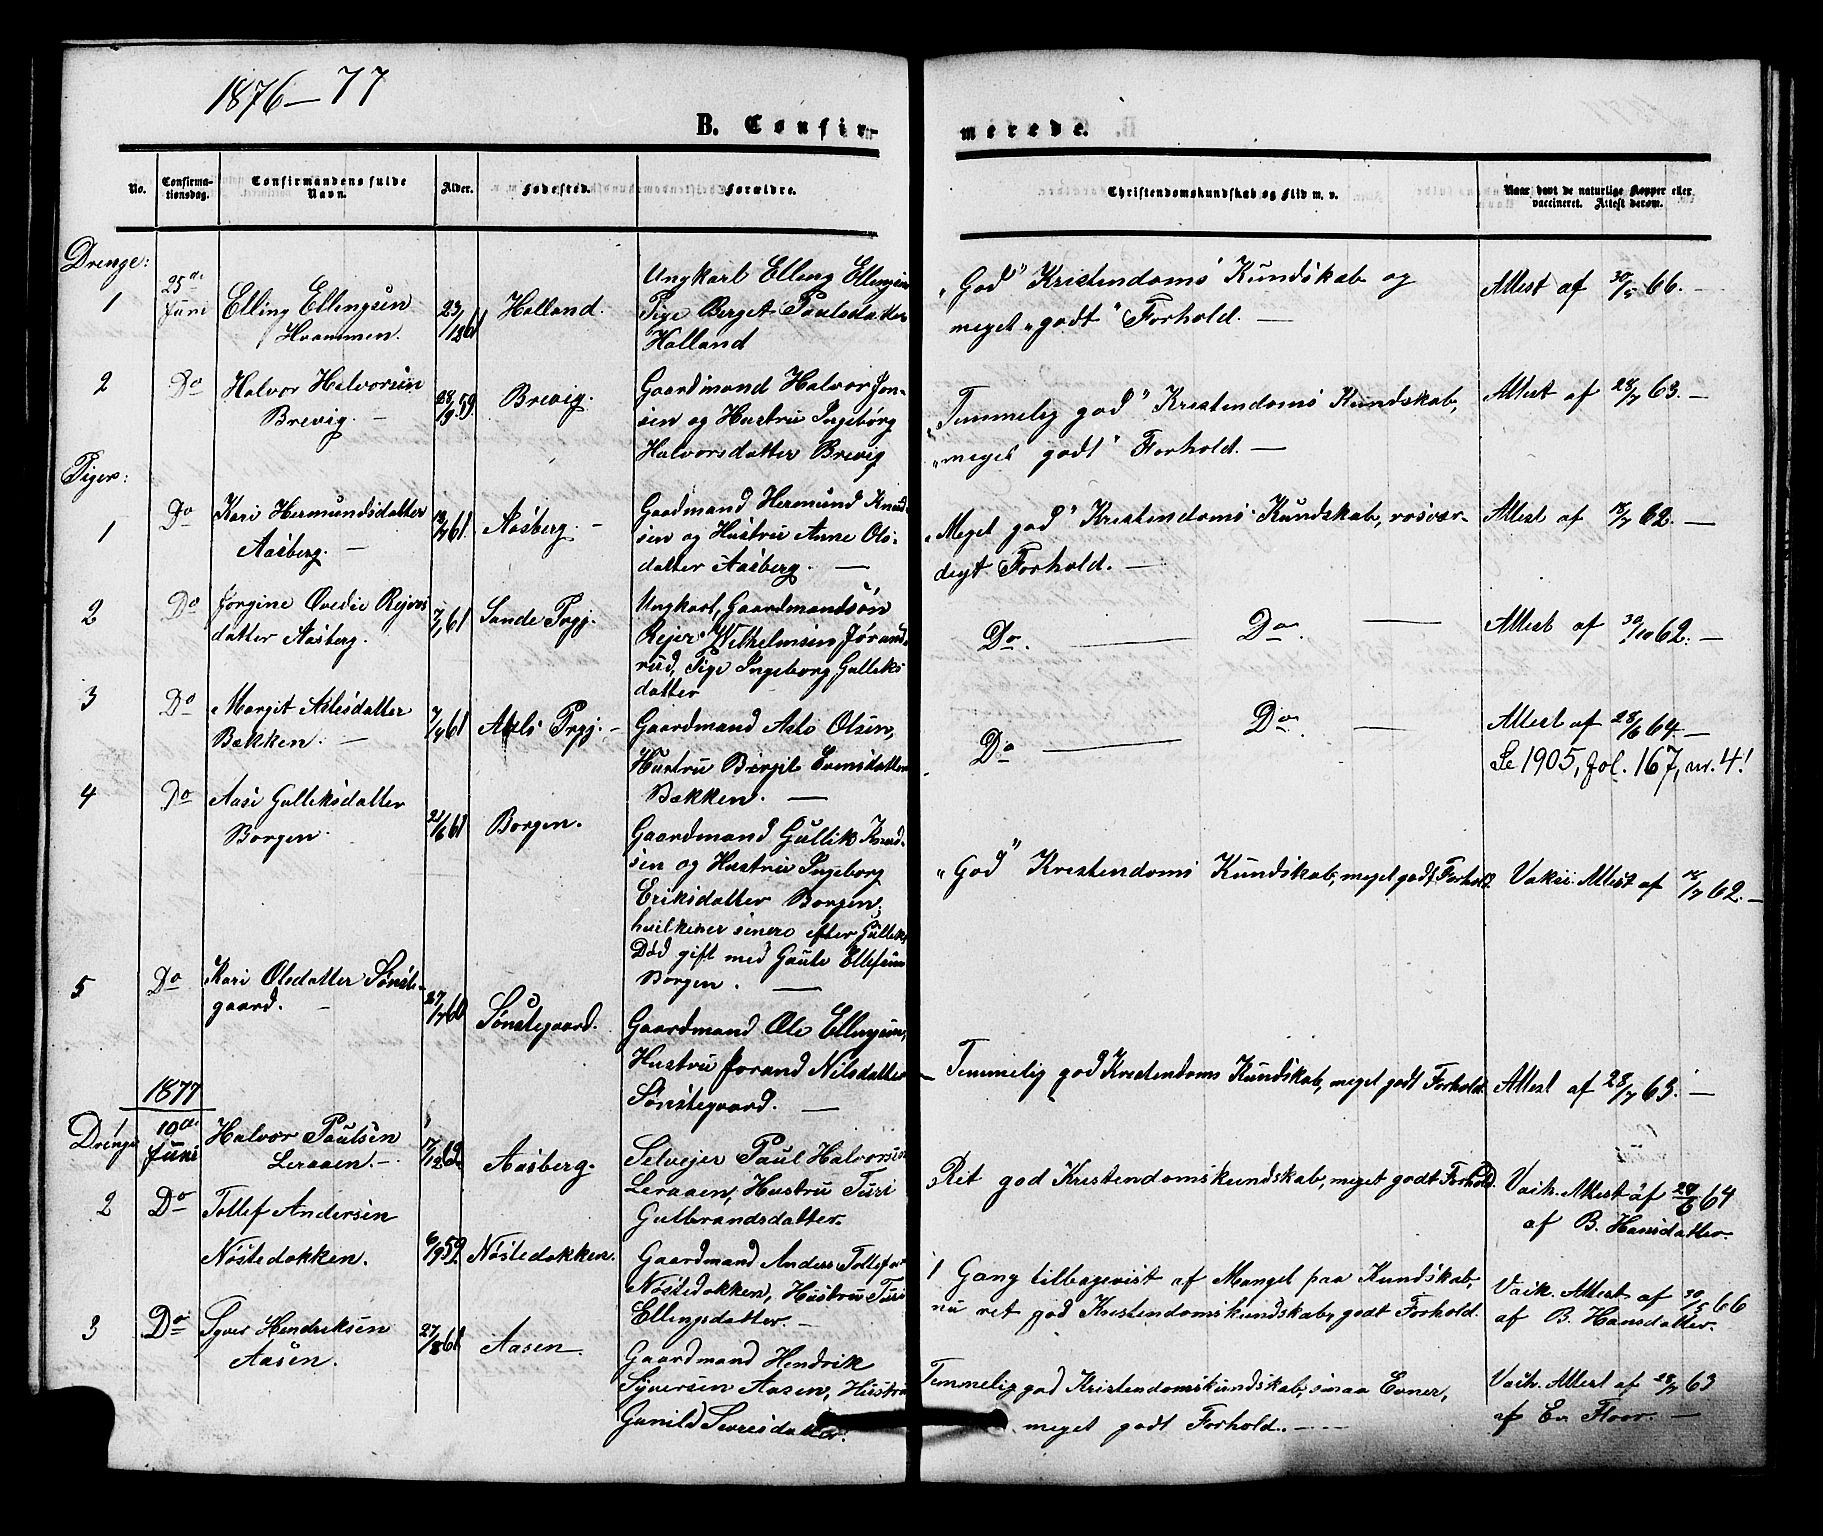 1876-77
B. Confirmerede.
No.
Confirmationsdag.
Confirmandens fulde Navn.
Alder.
Fødested.
Forældre.
Christendomskundskab og Flid m. v.
Naar havt de naturlige Kopper eller vaccineret. Attest derom.
Drenge:
1
25de Juni
Elling Ellingsen
Hvammen.
23/12 61
Holland.
Ungkarl Elling Ellingsen
Pige Berget Paulsdatter
Holland
"God" Kristendoms Kundskab og
meget "godt" Forhold. —
Attest af 30/5 66. —
2
Do
Halvor Halvorsen
Brevig. —
28/9 59
Brevig.
Gaardmand Halvor Jon-
sen og Hustru Ingebórg
Halvorsdatter Brevig
"Temmelig god" Kristendoms Kundskab,
"meget godt" Forhold. —
Attest af 28/7 63. —
Piger:
1
Do
Kari Hermundsdatter
Aasberg. —
61
Aasberg. —
Gaadmand Hermund Knud-
sen og Hustru Anne Ols-
datter Aasberg. —
"Meget god" Kristendoms Kundskab, rosvær-
digt Forhold. —
Attest af 62. —
2
Do
Jorgine Ovedie Rejers
datter Aasberg.
61
Sande Prgj.
Ungkarl, Gaardmandsøn
Rejer Wilhelmsen Jørand-
rud, Pige Ingeborg Gulleks
datter
Do. — Do. —
Attest af 30/10 62. —
3
Do
Margit Aslesdatter
Bækken. —
7/4 61
Aals Prgj. —
Gaardmand Asle Olsen,
Hustru Birgit Evensdatter
Bækken. —
Do — Do. —
Attest af 28/6 64. —
Se 1905, fol. 167, nr. 4!
4
Do
Aase Gulleksdatter
Borgen.
21/6 61
Borgen.
Gaardmand Gullik Knud-
sen og Hustru Ingeborg
Eriksdatter Borgen;
hvilken senere efter Gulleks
Død gift med Gaute Ellefsen
Borgen. —
"God" Kristendoms Kundskab, meget godt Forhold.
Attest af 62. —
5
Do
Kari Olsdatter Sønste-
gaard. —
27/7 60
Sønstegaard.
Gaardmand Ole Ellingsen,
Hustru Jorand Nilsdatter
Sønstegaard. —
Temmelig god Kristendoms Kundskab, meget godt Forhold.
Attest af 28/7 63. —
1877
Drenge
10de Juni
Halvor Paulsen
Leraaen. —
7/12 62
Aasberg.
Selvejer Paul Halvorsen
Leraaen, Hustru Turi
Gulbrandsdatter.
Ret god Kristendomskundskab, meget godt Forhold.
Vack. Attest af 28/6 64
af B. Hansdatter.
2
Do
Tollef Andersen
Nóstedokken.
6/9 59
Nóstedokken.
Gaardmand Anders Tollefsen
Nóstedokken, Hustru Turi
Ellingsdatter. —
1 Gang tilbagevist af Mangel paa Kundskab,
nu ret god Kristendomskundskab, godt Forhold.
Vack. Attest af 30/5 66
af B. Hansdatter.
3
Do
Syver Hendriksen
Aasen.
27/8 61
Aasen.
Gaardmand Hendrik
Syversen Aasen, Hustru
Gunild Sevresdatter.
Temmelig god Kristendomskundskab, smaa Evner,
meget godt Forhold. —
Vack. Attest af 28/7 63
af Ev. Floor. —